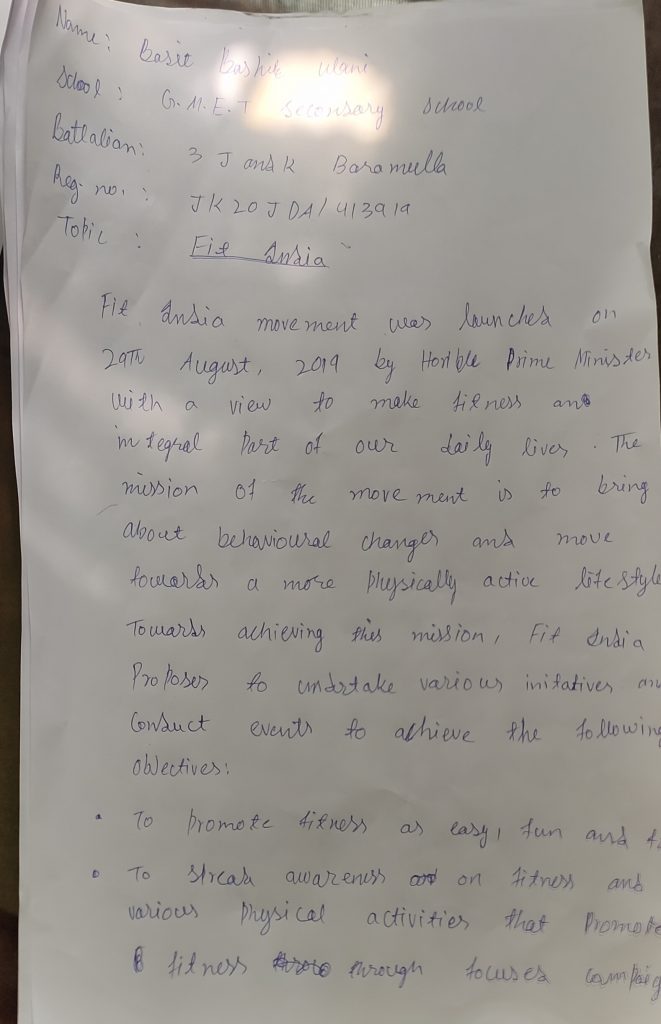 Name: Basit Bashir Wani
School: G.M.E.T Secondary School
Batlalian: 3 J and K Baramulla
Reg. no. : JK20JDA/413919
Topic : Fit India
Fit India movement was launched on
29Th August, 2019 by Hon'ble Prime Minister
with a view to make fitness and
integral Part of our daily lives. The
mission of the movement is to bring
about behavioural changes and move
towards a more Physically active lifestyle
Towards achieving this mission, Fit India
Proposes to undertake various initatives an
Conduct events to achieve the following
objectives:
• To promote fitness as easy, fun and f
• To spread awareness on fitness and
various Physical activities that Promote
fitness through focuses campaig